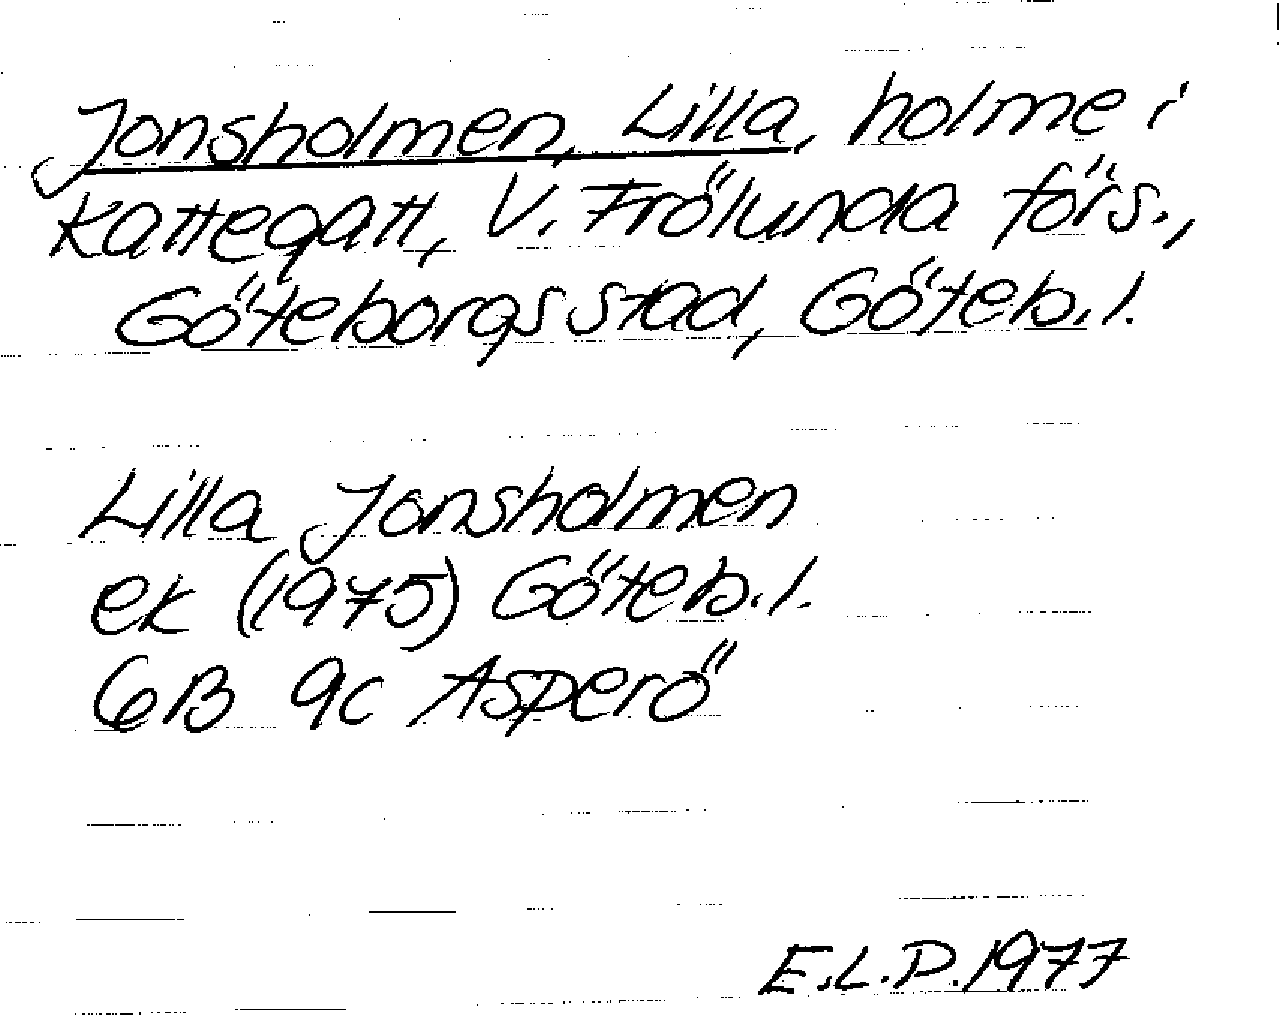 Jonsholmen, Lilla, holme i
Kattegatt, V. Frölunda förs.,
Göteborgs stad, Göteb.l.
Lilla Jonsholmen
ek (1975) Göteb.l.
6B 9c Asperö
E.L.P. 1977